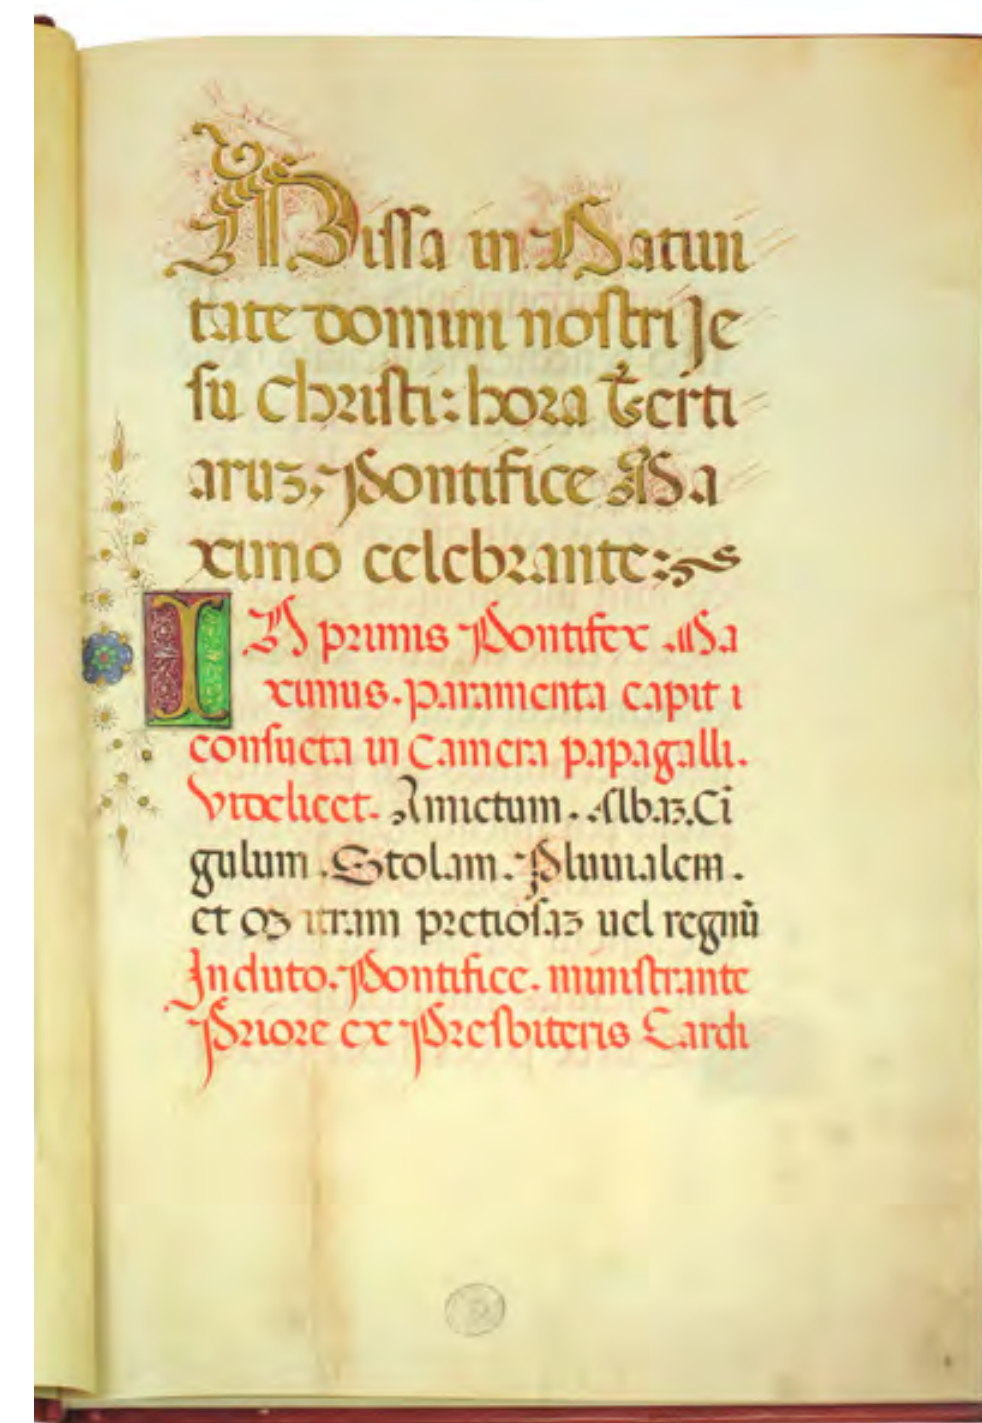 Missa in Natiui
tate domini nostri Je
su Christi: hora Terti
aruꝫ, Pontifice Ma
ximo celebrante:
IN primis Pontifex Ma
ximus. paramenta capit i
consueta in Camera papagalli.
Videlicet. Amictum. Albaꝫ. Ci
gulum. Stolam. Pluuialem.
et Mitram pretiosaꝫ uel regnū
Induto. Pontifice. ministrante
Priore ex Presbiteris Cardi